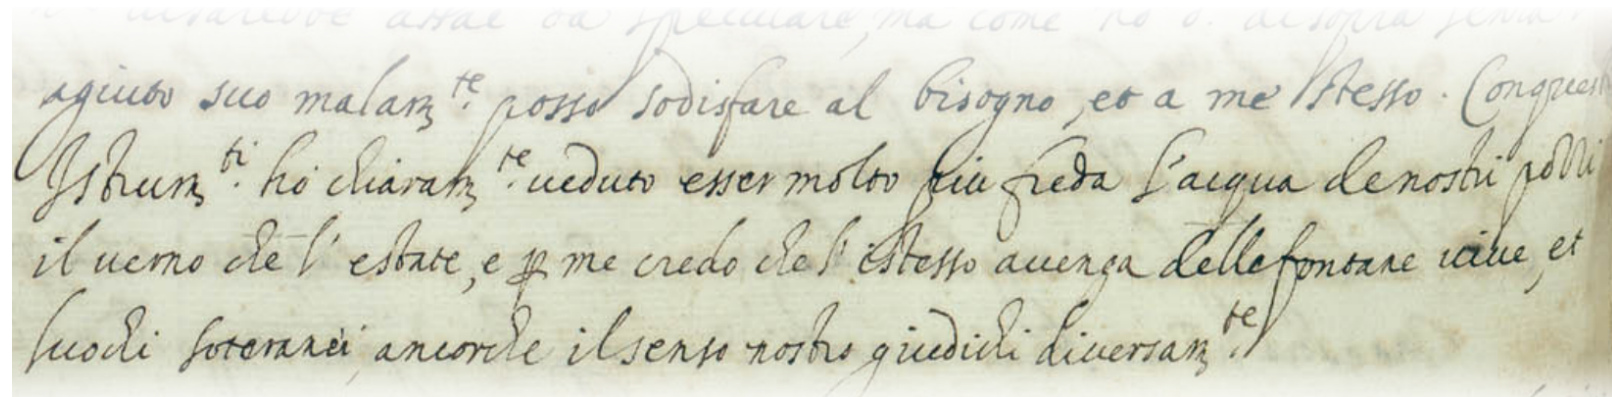 disarebbe assae da speculare, ma come ho d. disopra senza
agiuto suo malam.te posso sodisfare al bisogno, et a me stesso. Conquesti
Istrum.ti ho chiaram.te ueduto esser molto piu freda l'acqua de nostri pozzi
il uerno che l' estate, e p me credo che l' istesso auenga delle fontane uiue, et
luochi soteranei, ancorche il senso nostro giudichi diuersam.te